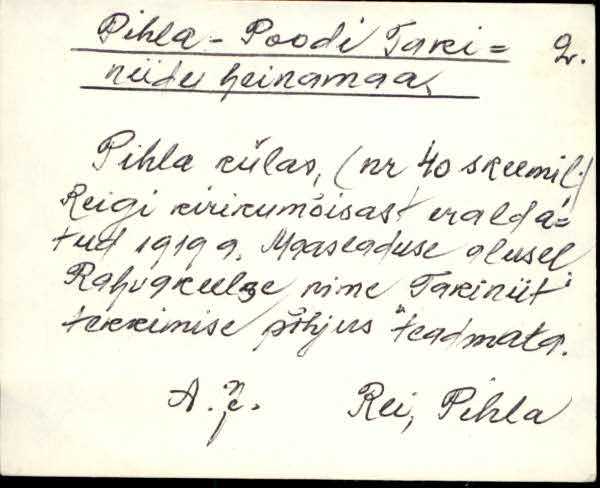 Pihla - Poodi Taki= 2.
niidu heinamaa.
Pihla külas, (nr 40 skeemil)
Reigi kirikumõisast eralda=
tud 1919 a. Maaseaduse alusel
Rahvakeelse nime "Takiniit"
tekkimise põhjus teadmata.
Rei, Pihla